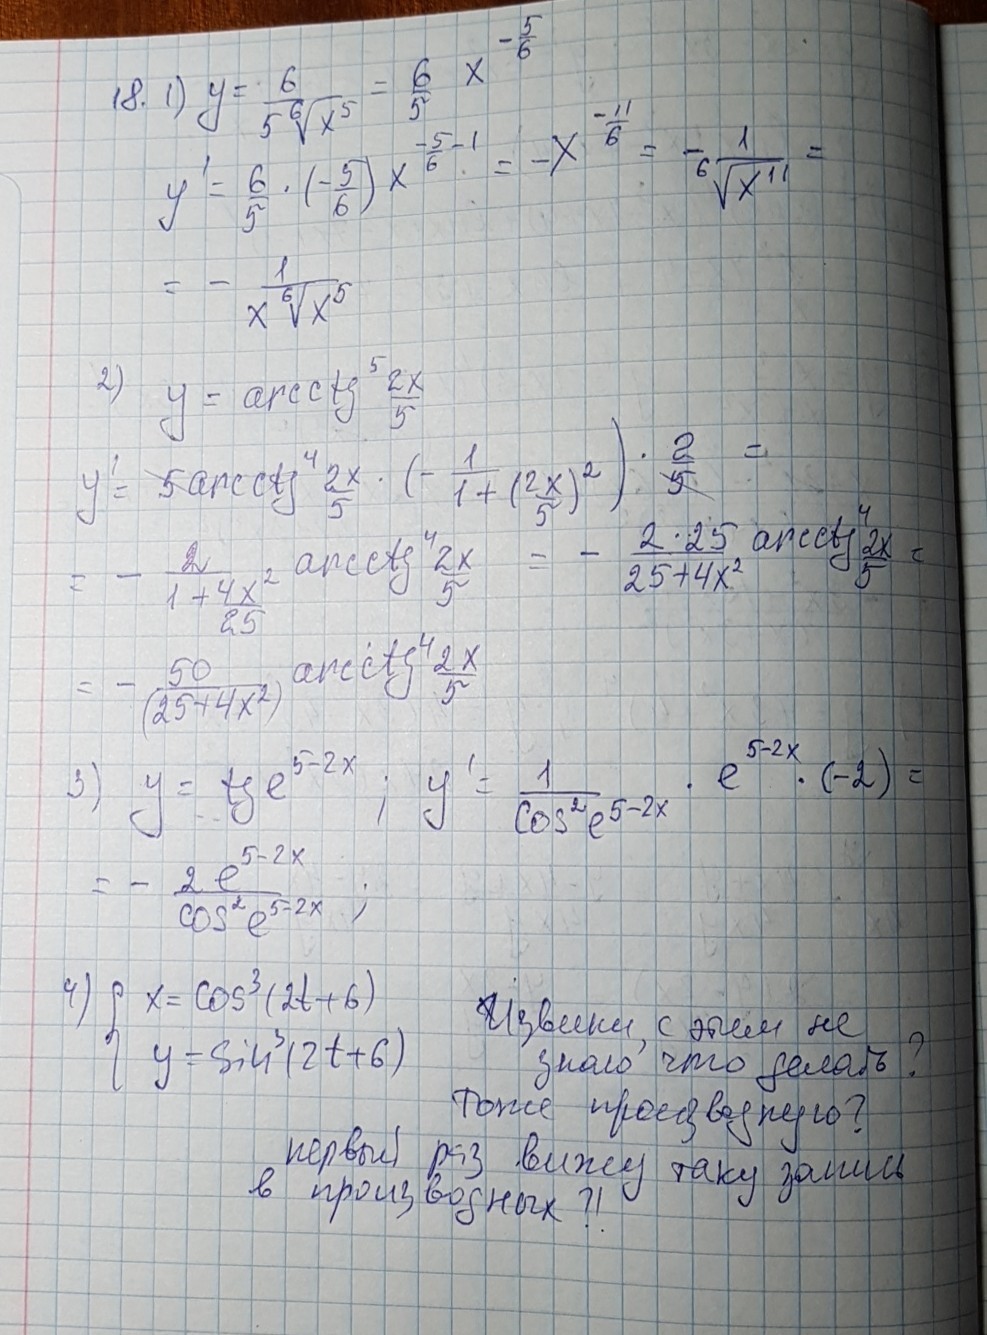 18. 1) y = 6/(5 ⁶√x⁵) = 6/5 x^(-5/6)
y' = 6/5 · (-5/6) x^(-5/6 - 1) = -x^(-11/6) = - 1/⁶√x¹¹ =
= - 1/(x ⁶√x⁵)
2) y = arcctg⁵ 2x/5
y' = 5 arcctg⁴ 2x/5 · (- 1/(1+(2x/5)²)) · 2/5 =
= - 2/(1+4x²/25) arcctg⁴ 2x/5 = - 2·25/(25+4x²) arcctg⁴ 2x/5 =
= - 50/(25+4x²) arcctg⁴ 2x/5
3) y = tg e^(5-2x) ; y' = 1/(cos² e^(5-2x)) · e^(5-2x) · (-2) =
= - 2e^(5-2x)/(cos² e^(5-2x)) ;
4) { x = cos³(2t+6)
y = sin³(2t+6)
Извини, с этим не
знаю что делать?
Тоже производную?
первый раз вижу таку запись
в производных?!